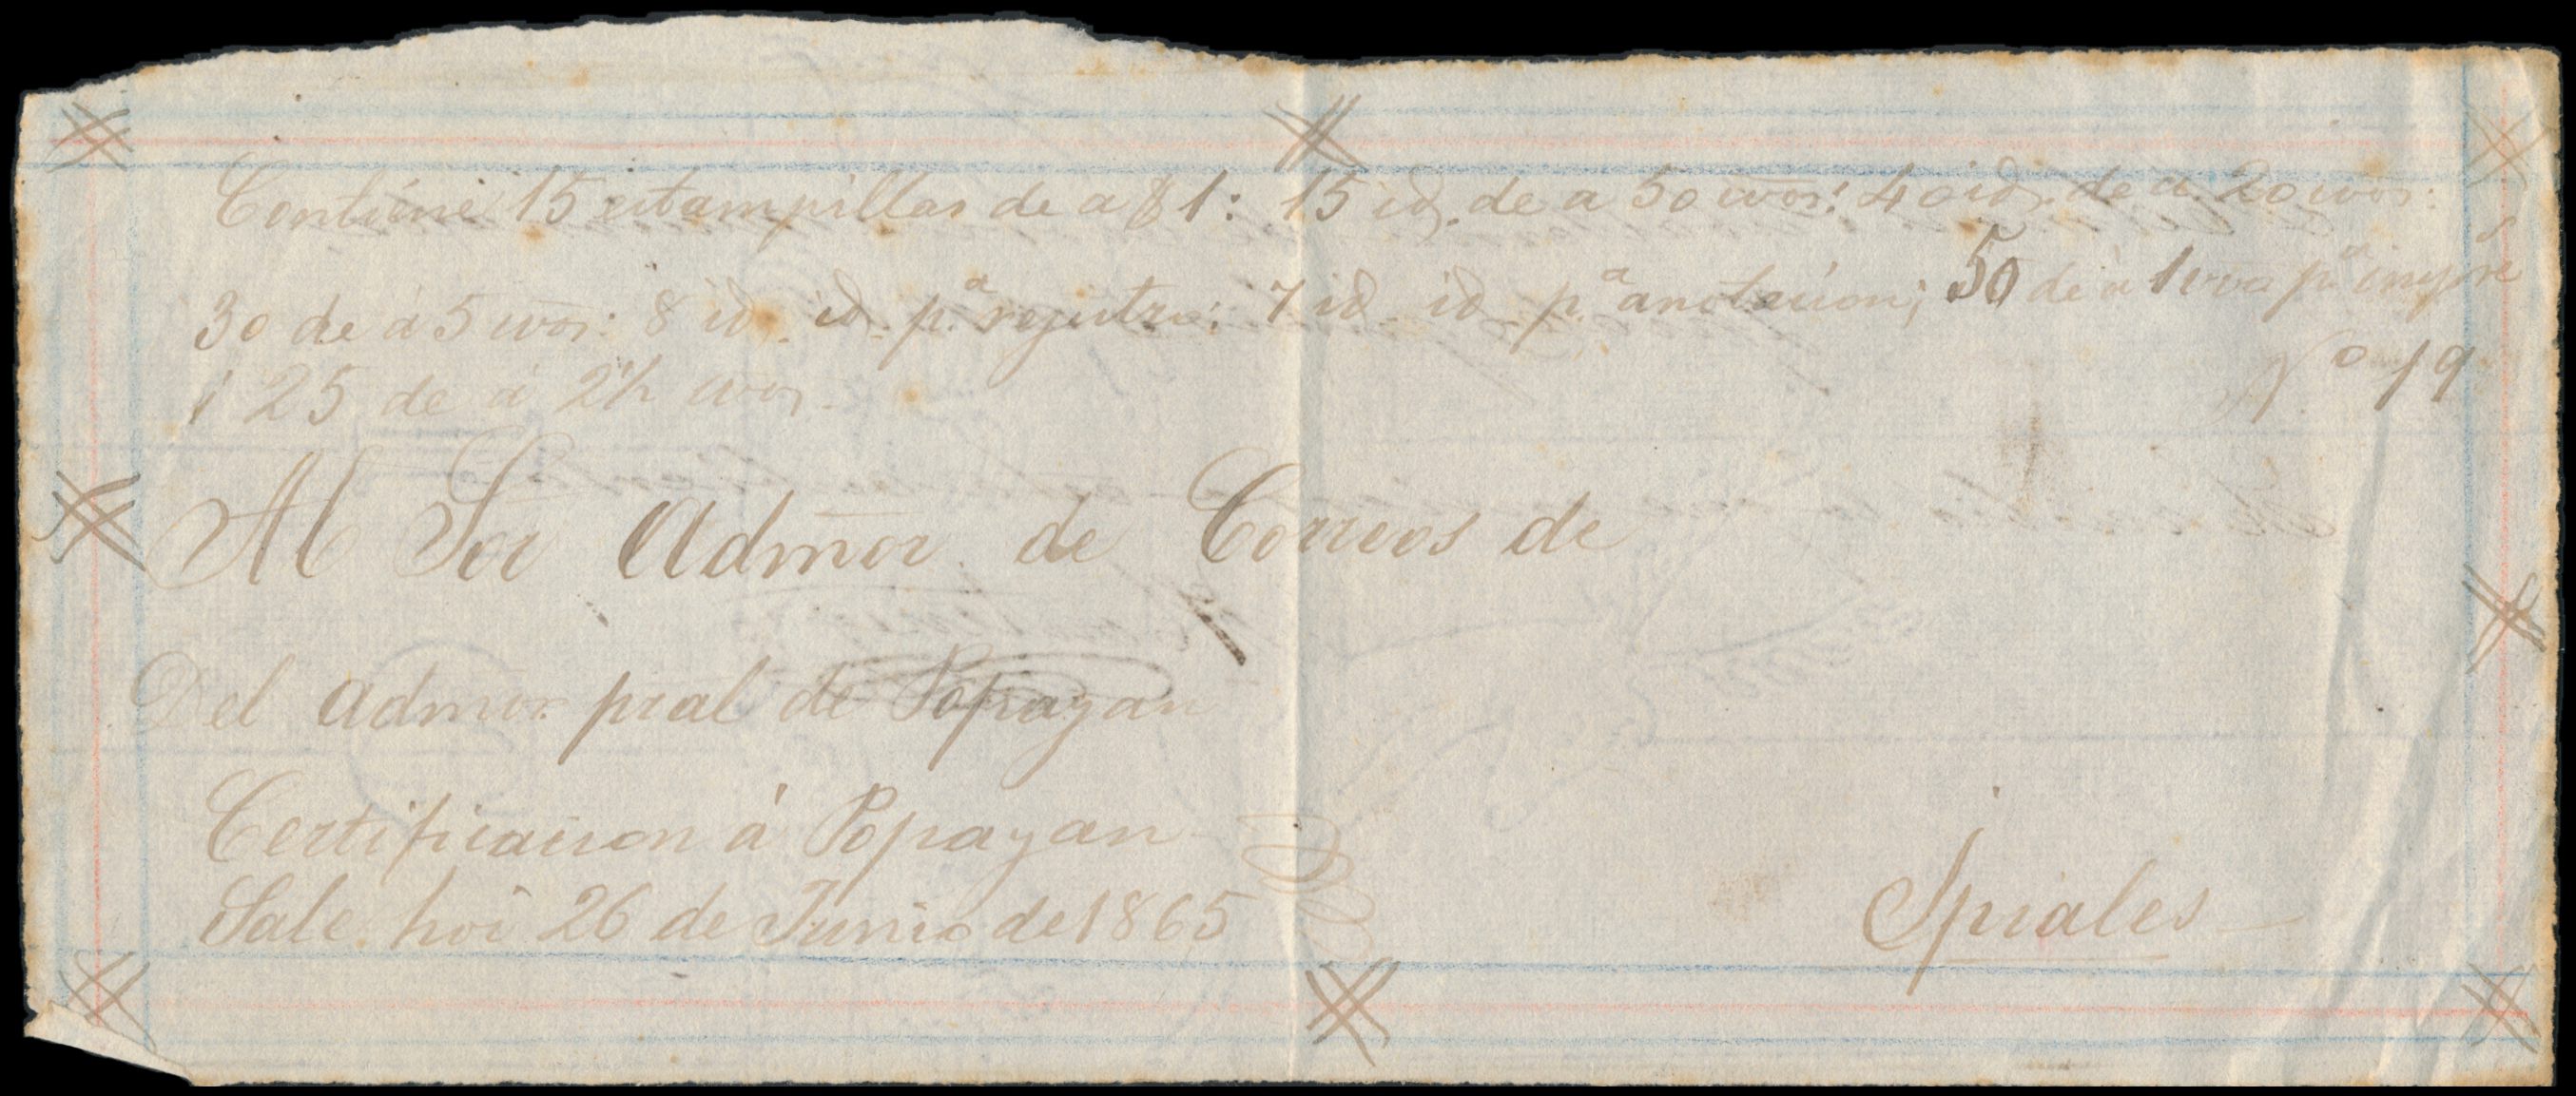 Contiene 15 estampillas de a $1: 15 id. de a 50 cvos: 40 id. de a 20 cvos:
30 de á 5 cvos: 8 id. id. p.ª rejistro: 7 id. id. p.ª anotacion; 50 de á 1 cvo pª impre
i 25 de á 2½ cvos.
Nº 19
Al Sor Admor. de Correos de
Del Admor. pral de Popayan
Certificacion á Popayan
Sale hoi 26 de Junio de 1865
Ipiales